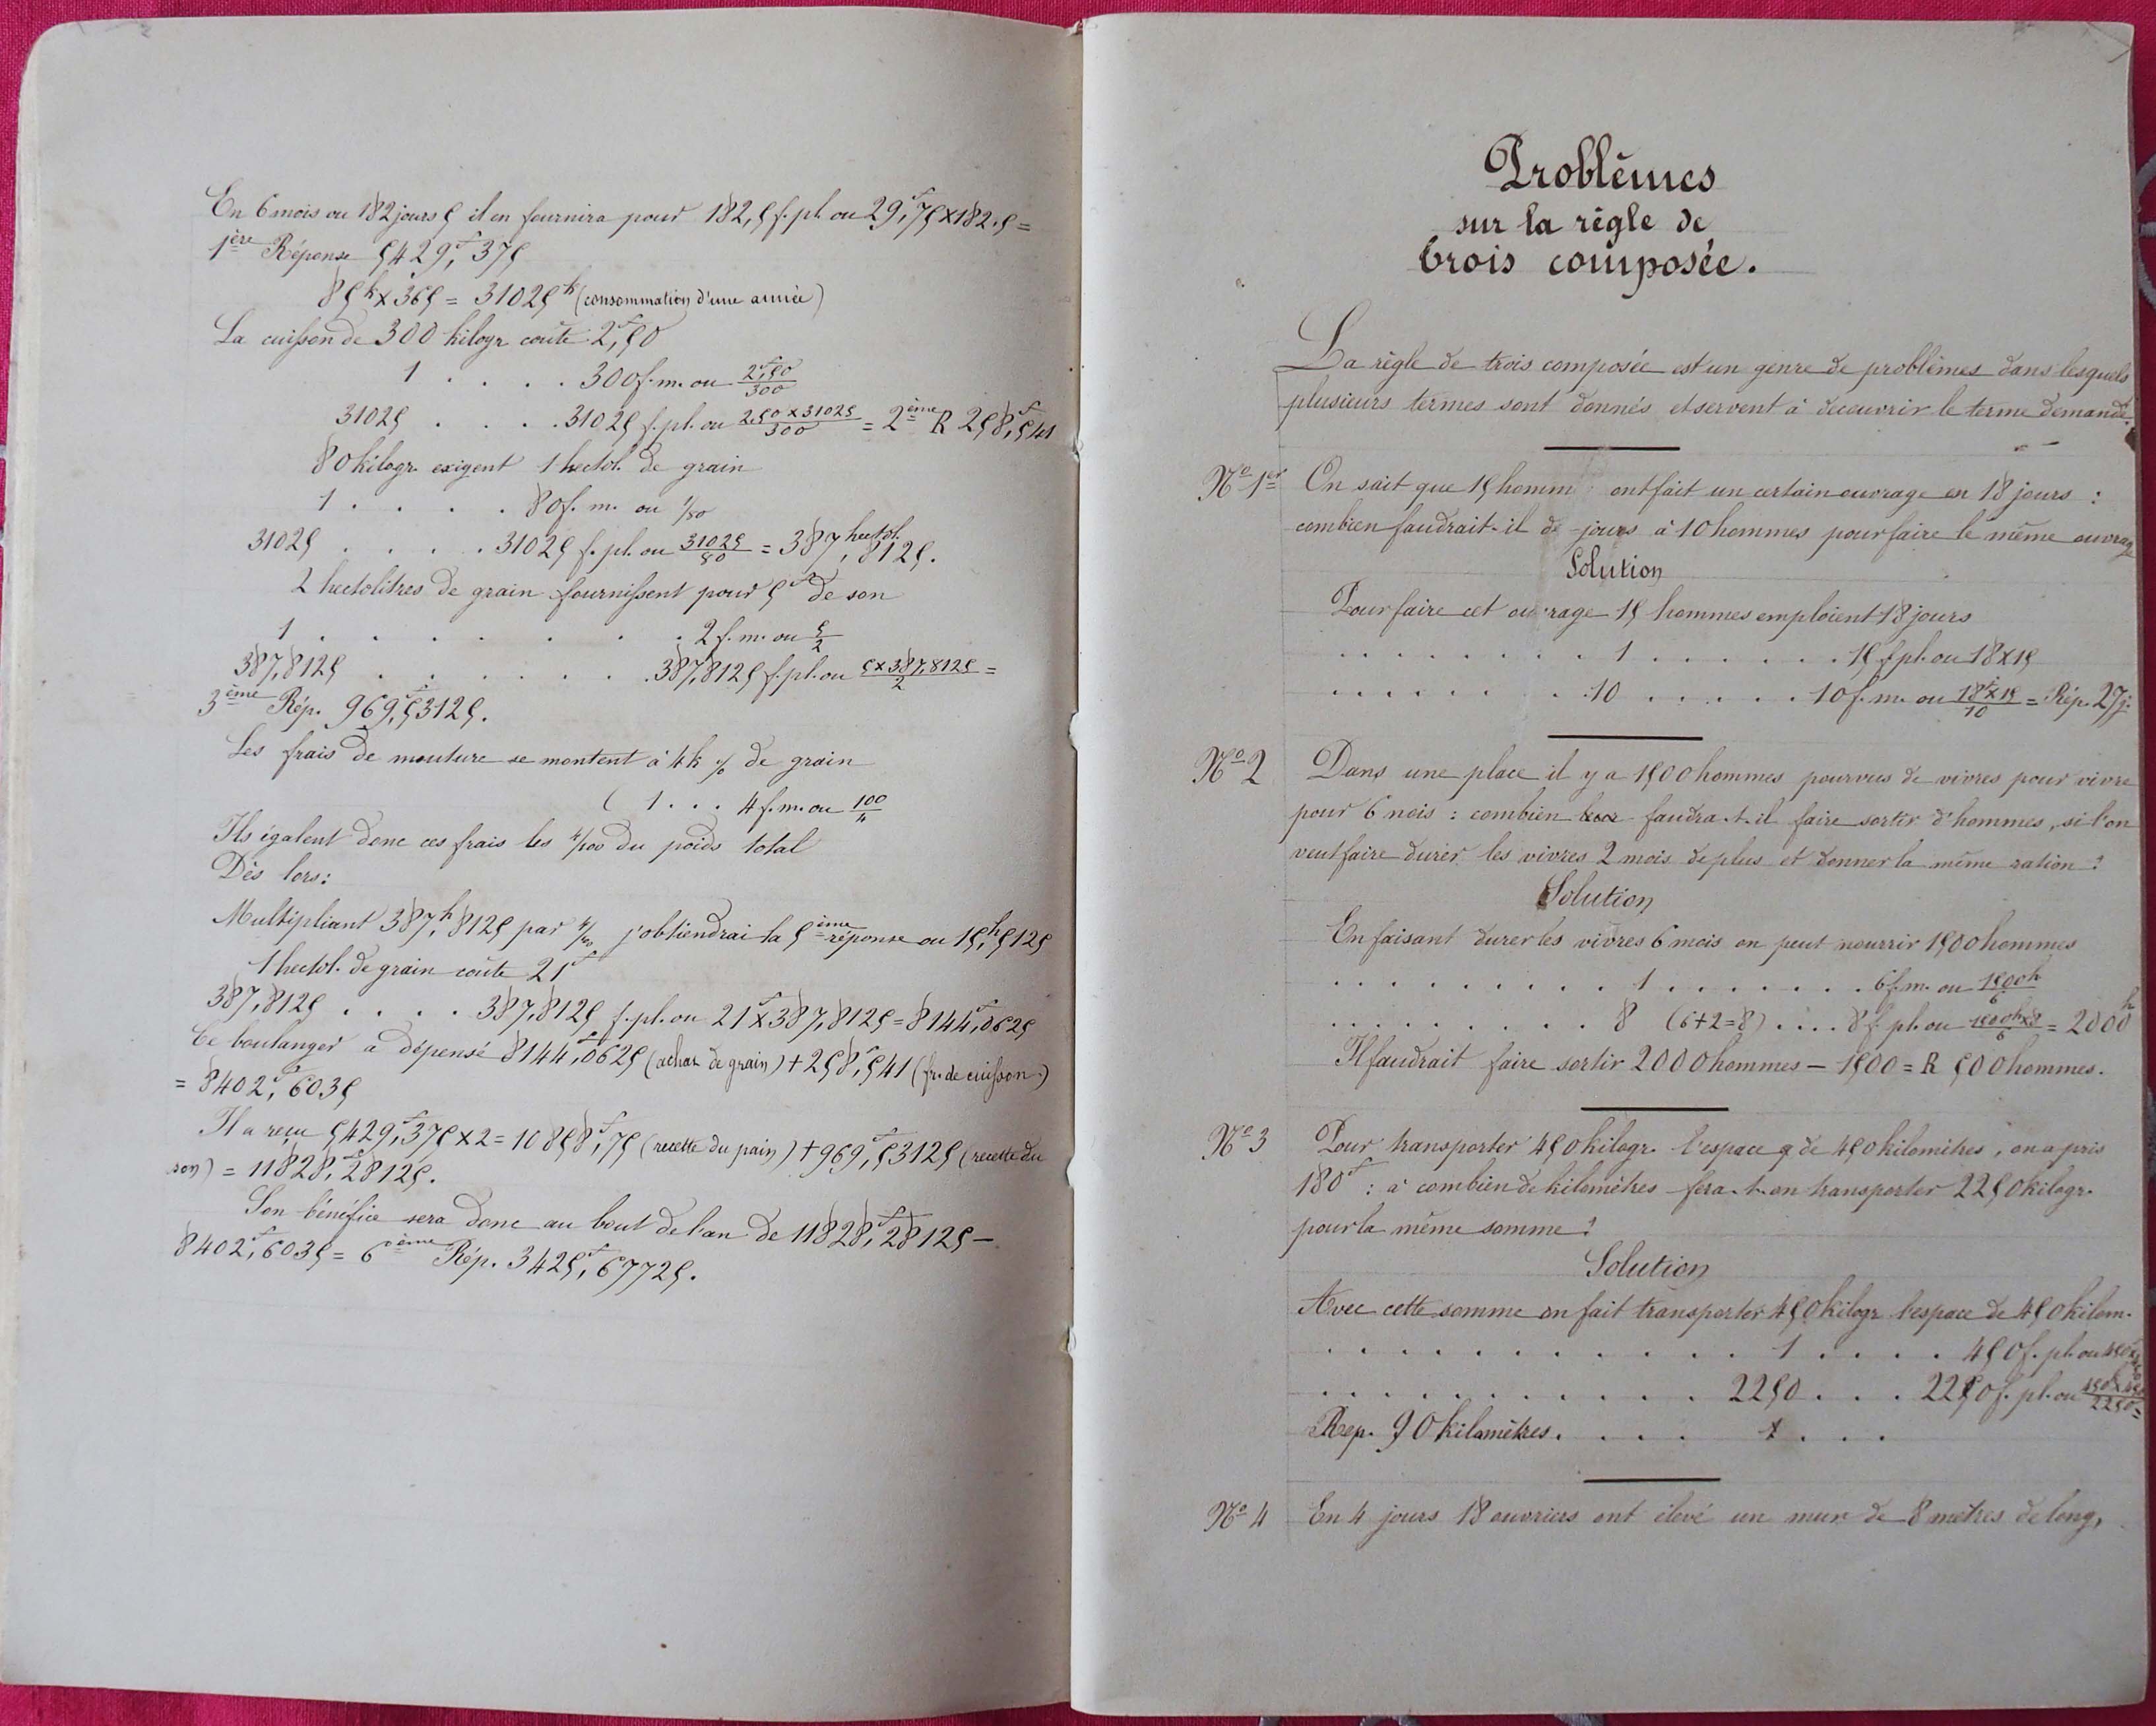 En 6 mois ou 182 jours 5 il en fournira pour 182,5 f. pl. ou 29,f75 x 182.5 =
1ère Réponse 5429,f375
85k x 365 = 31025k (consommation d'une année)
La cuisson de 300 kilogr coûte 2,f50
1 . . . . 300 f. m. ou 2f,50/300
31025 . . . . 31025 f. pl. ou 2.50 x 31025/300 = 2ème R 258,f541
80 kilogr. exigent 1 hectol. de grain
1 . . . . . 80 f. m. ou 1/80
31025 . . . . . 31025 f. pl. ou 31025/80 = 387,hectol.8125.
2 hectolitres de grain fournissent pour 5f de son
1 . . . . . . . 2 f. m. ou 5/2
387,8125 . . . . . . 387,8125 f. pl. ou 5 x 387,8125/2 =
3ème Rép. 969,f53125.
Les frais de mouture se montent à 4k % de grain
( 1 . . . 4 f. m. ou 100/4
Ils égalent donc ces frais les 4/100 du poids total
Dès lors:
Multipliant 387,h8125 par 4/100 j'obtiendrai la 5ème réponse ou 15,h5125
1 hectol. de grain coûte 21f
387,8125 . . . . 387,8125 f. pl. ou 21f x 387,8125 = 8144,f0625
Ce boulanger a dépensé 8144,f0625 (achat de grain) + 258,f541 (fr. de cuisson.)
= 8402,f6035
Il a reçu 5429,f375 x 2 = 10858,f75 (recette du pain) + 969,f53125 (recette du
son) = 11828,f28125.
Son bénéfice sera donc au bout de l'an de 11828,f28125 –
8402,f6035 = 6ème Rép. 3425,f67725.
Problèmes
sur la règle de
trois composée.
La règle de trois composée est un genre de problèmes dans lesquels
plusieurs termes sont donnés et servent à decouvrir le terme demandé.
No 1er On sait que 15 homm ont fait un certain ouvrage en 18 jours :
combien faudrait-il de jours à 10 hommes pour faire le même ouvrage
Solution
Pour faire cet ouvrage 15 hommes emploient 18 jours
. . . . . . . . 1 . . . . . . . 15 f. pl. ou 18 x 15
. . . . . . . 10 . . . . . 10 f. m. ou 18j x 15/10 = Rép. 27 j.
No 2 Dans une place il y a 1500 hommes pourvus de vivres pour vivre
pour 6 mois : combien faudra-t-il faire sortir d'hommes, si l'on
veut faire durer les vivres 2 mois de plus et donner la même ration ?
Solution
En faisant durer les vivres 6 mois on peut nourrir 1500 hommes
. . . . . . . . . 1 . . . . . . . 6 f. m. ou 1500h/6
. . . . . . . . . 8 (6+2=8) . . . . 8 f. pl. ou 1500h x 8/6 = 2000h
Il faudrait faire sortir 2000 hommes – 1500 = R 500 hommes.
No 3 Pour transporter 450 kilogr. l'espace q de 450 kilomètres, on a pris
180f : à combien de kilomètres fera-t-on transporter 2250 kilogr.
pour la même somme ?
Solution
Avec cette somme on fait transporter 450 kilogr l'espace de 450 kilom.
. . . . . . . . . . . 1 . . . . . 450 f. pl. ou
. . . . . . . . . . . 2250 . . . 2250 f. pl. ou 450 x 450/2250 =
Rep. 90 kilomètres. . . . . 1 . . .
No 4 En 4 jours 18 ouvriers ont élevé un mur de 8 mètres de long,